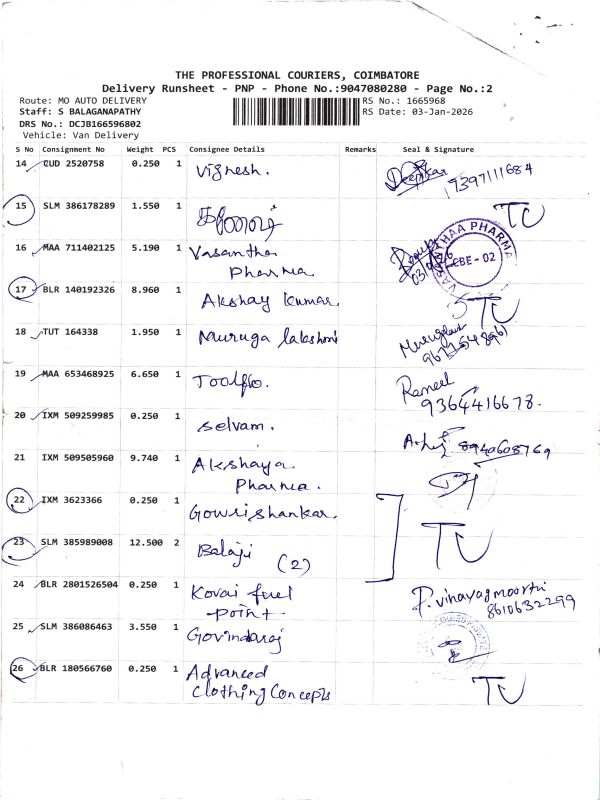 THE PROFESSIONAL COURIERS, COIMBATORE
Delivery Runsheet - PNP - Phone No.:9047080280 - Page No.:2
Route: MO AUTO DELIVERY RS No.: 1665968
Staff: S BALAGANAPATHY RS Date: 03-Jan-2026
DRS No.: DCJB166596802
Vehicle: Van Delivery
S No Consignment No Weight PCS Consignee Details Remarks Seal & Signature
14 CUD 2520758 0.250 1 Vignesh. Deepikar 9397111684
15 SLM 386178289 1.550 1 TU
16 MAA 711402125 5.190 1 Vasantha
Pharma
VASANTHAA PHARMA
CBE - 02
17 BLR 140192326 8.960 1 Akshay kumar. TU
18 TUT 164338 1.950 1 Muruga lakshmi
19 MAA 653468925 6.650 1 Toolflo. Rameel
9364416678.
20 IXM 509259985 0.250 1 Selvam. 8940608769
21 IXM 509505960 9.740 1 Akshaya
Pharma.
22 IXM 3623366 0.250 1 Gowrishankar.
23 SLM 385989008 12.500 2 Balaji (2) TU
24 BLR 2801526504 0.250 1 Kovai fuel
point. P. vinayagmoorthi
8610632299
25 SLM 386086463 3.550 1 Govindaraj
26 BLR 180566760 0.250 1 Advanced
Clothing Concepts TU